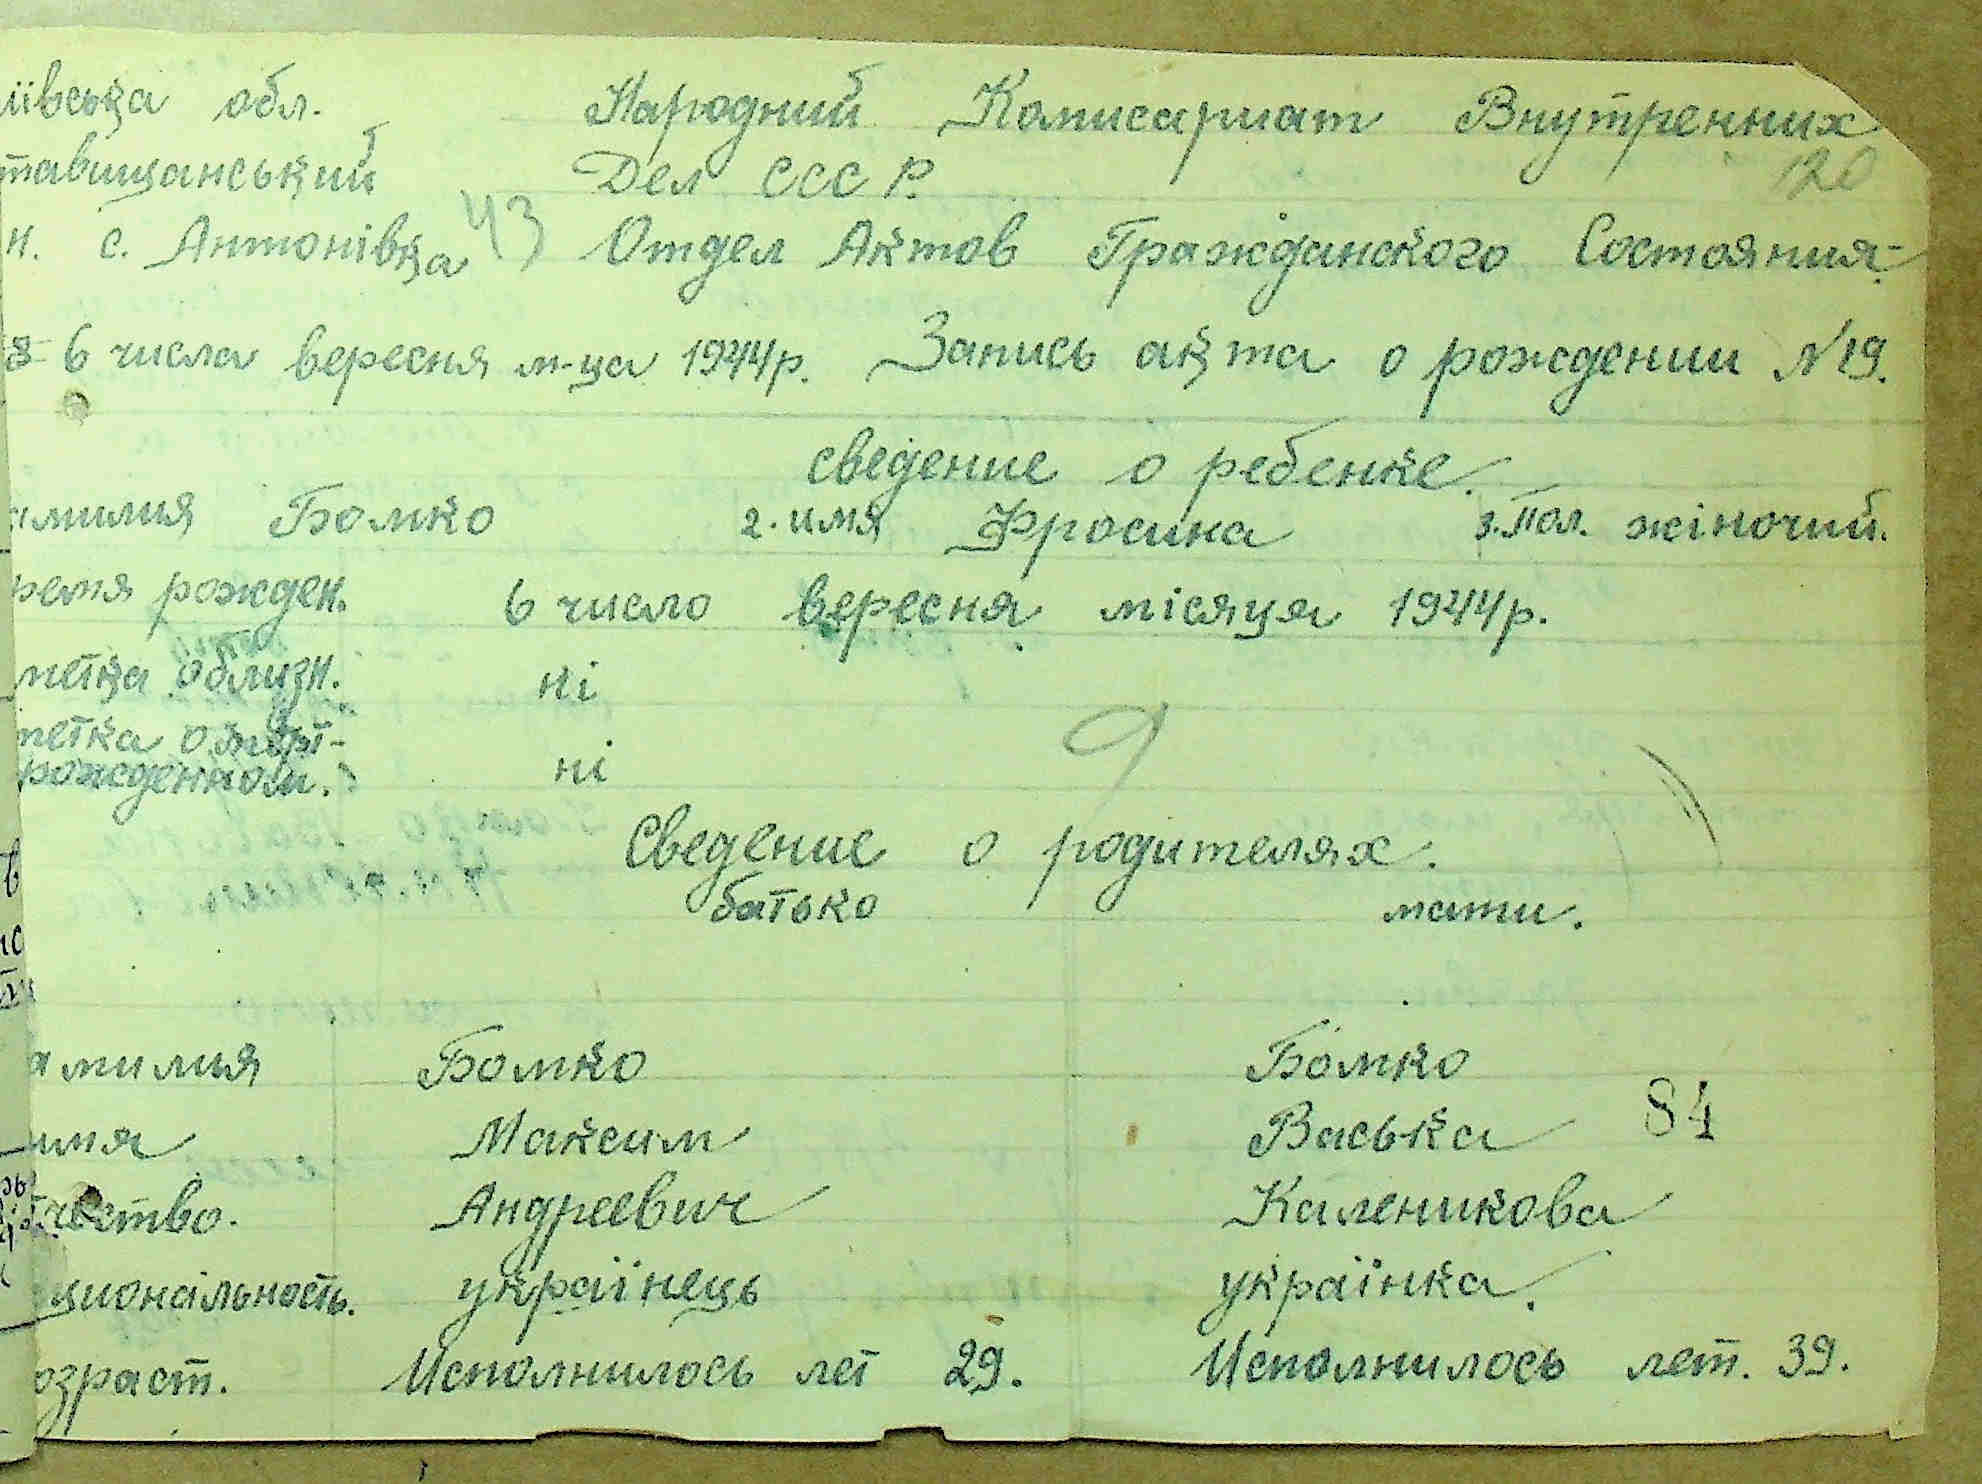 ївська обл. Народний Комисариат Внутренних
тавищанський Дел СССР. 120
н. с. Антонівка 43 Отдел Актов Гражданского Состояния-
6 числа вересня м-ца 1944р. Запись акта о рождении N19.
сведение о ребенке.
амилия Бомко 2. имя Фросина 3. Пол. жіночий.
ремя рожден. 6 число вересня місяця 1944р.
метка облизн. ні
метка о мерт-
рожденном. ні
Сведение о родителях.
батько мати.
амилия Бомко Бомко
84
имя Максим Васька
чество. Андреевич Каленикова
циональность. українець українка.
озраст. Исполнилось лет 29. Исполнилось лет. 39.